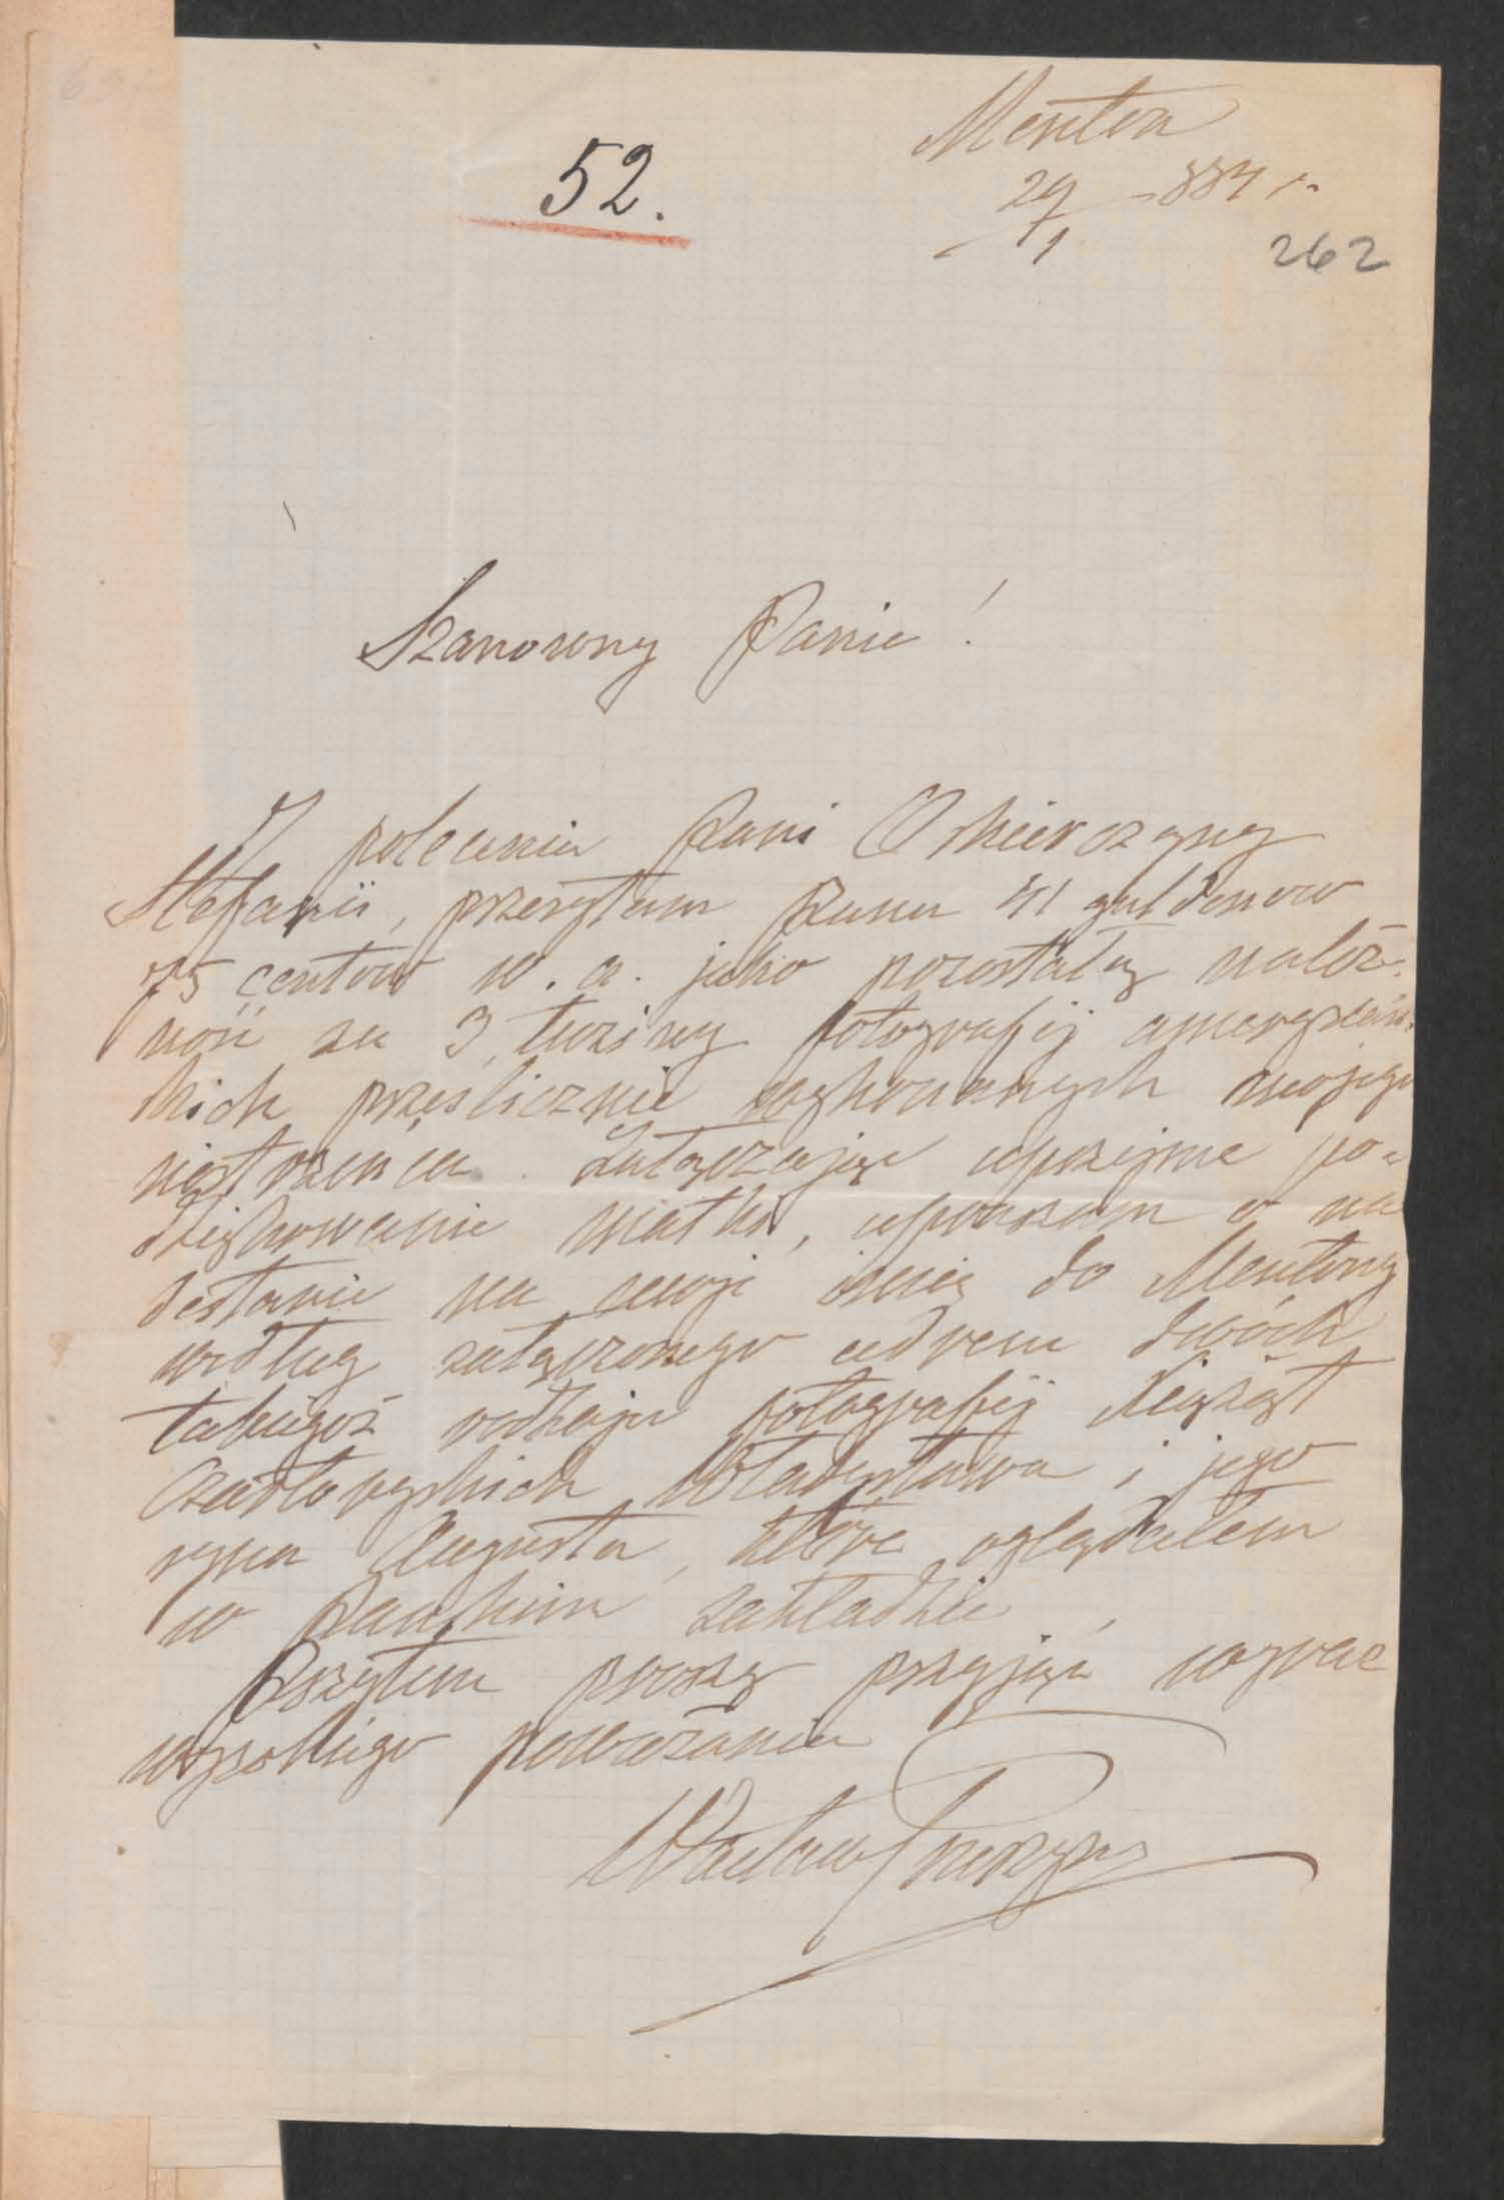 Menton
52.
29/1 -887 r.
262
Szanowny Panie!
Z polecenia Pani Oskierczyny
Stefanii, przesyłam Panu 41 guldenów
75 centów w. a. jako pozostałą należ-
ność za 3 tuziny fotografij amerykań-
kich prześlicznie wykonanych mojego
siostrzeńca. Załączając uprzejme po-
dziękowanie matki, upraszam o na
desłanie na moje imię do Mentony
według załączonego adresu dwóch
takiegoż rodzaju fotografij Książąt
Czartoryskich Władysława i jego
syna Augusta, które oglądałem
w Pańskim zakładzie.
Przytem proszę przyjąć wyraz
wysokiego poważania
Wacław